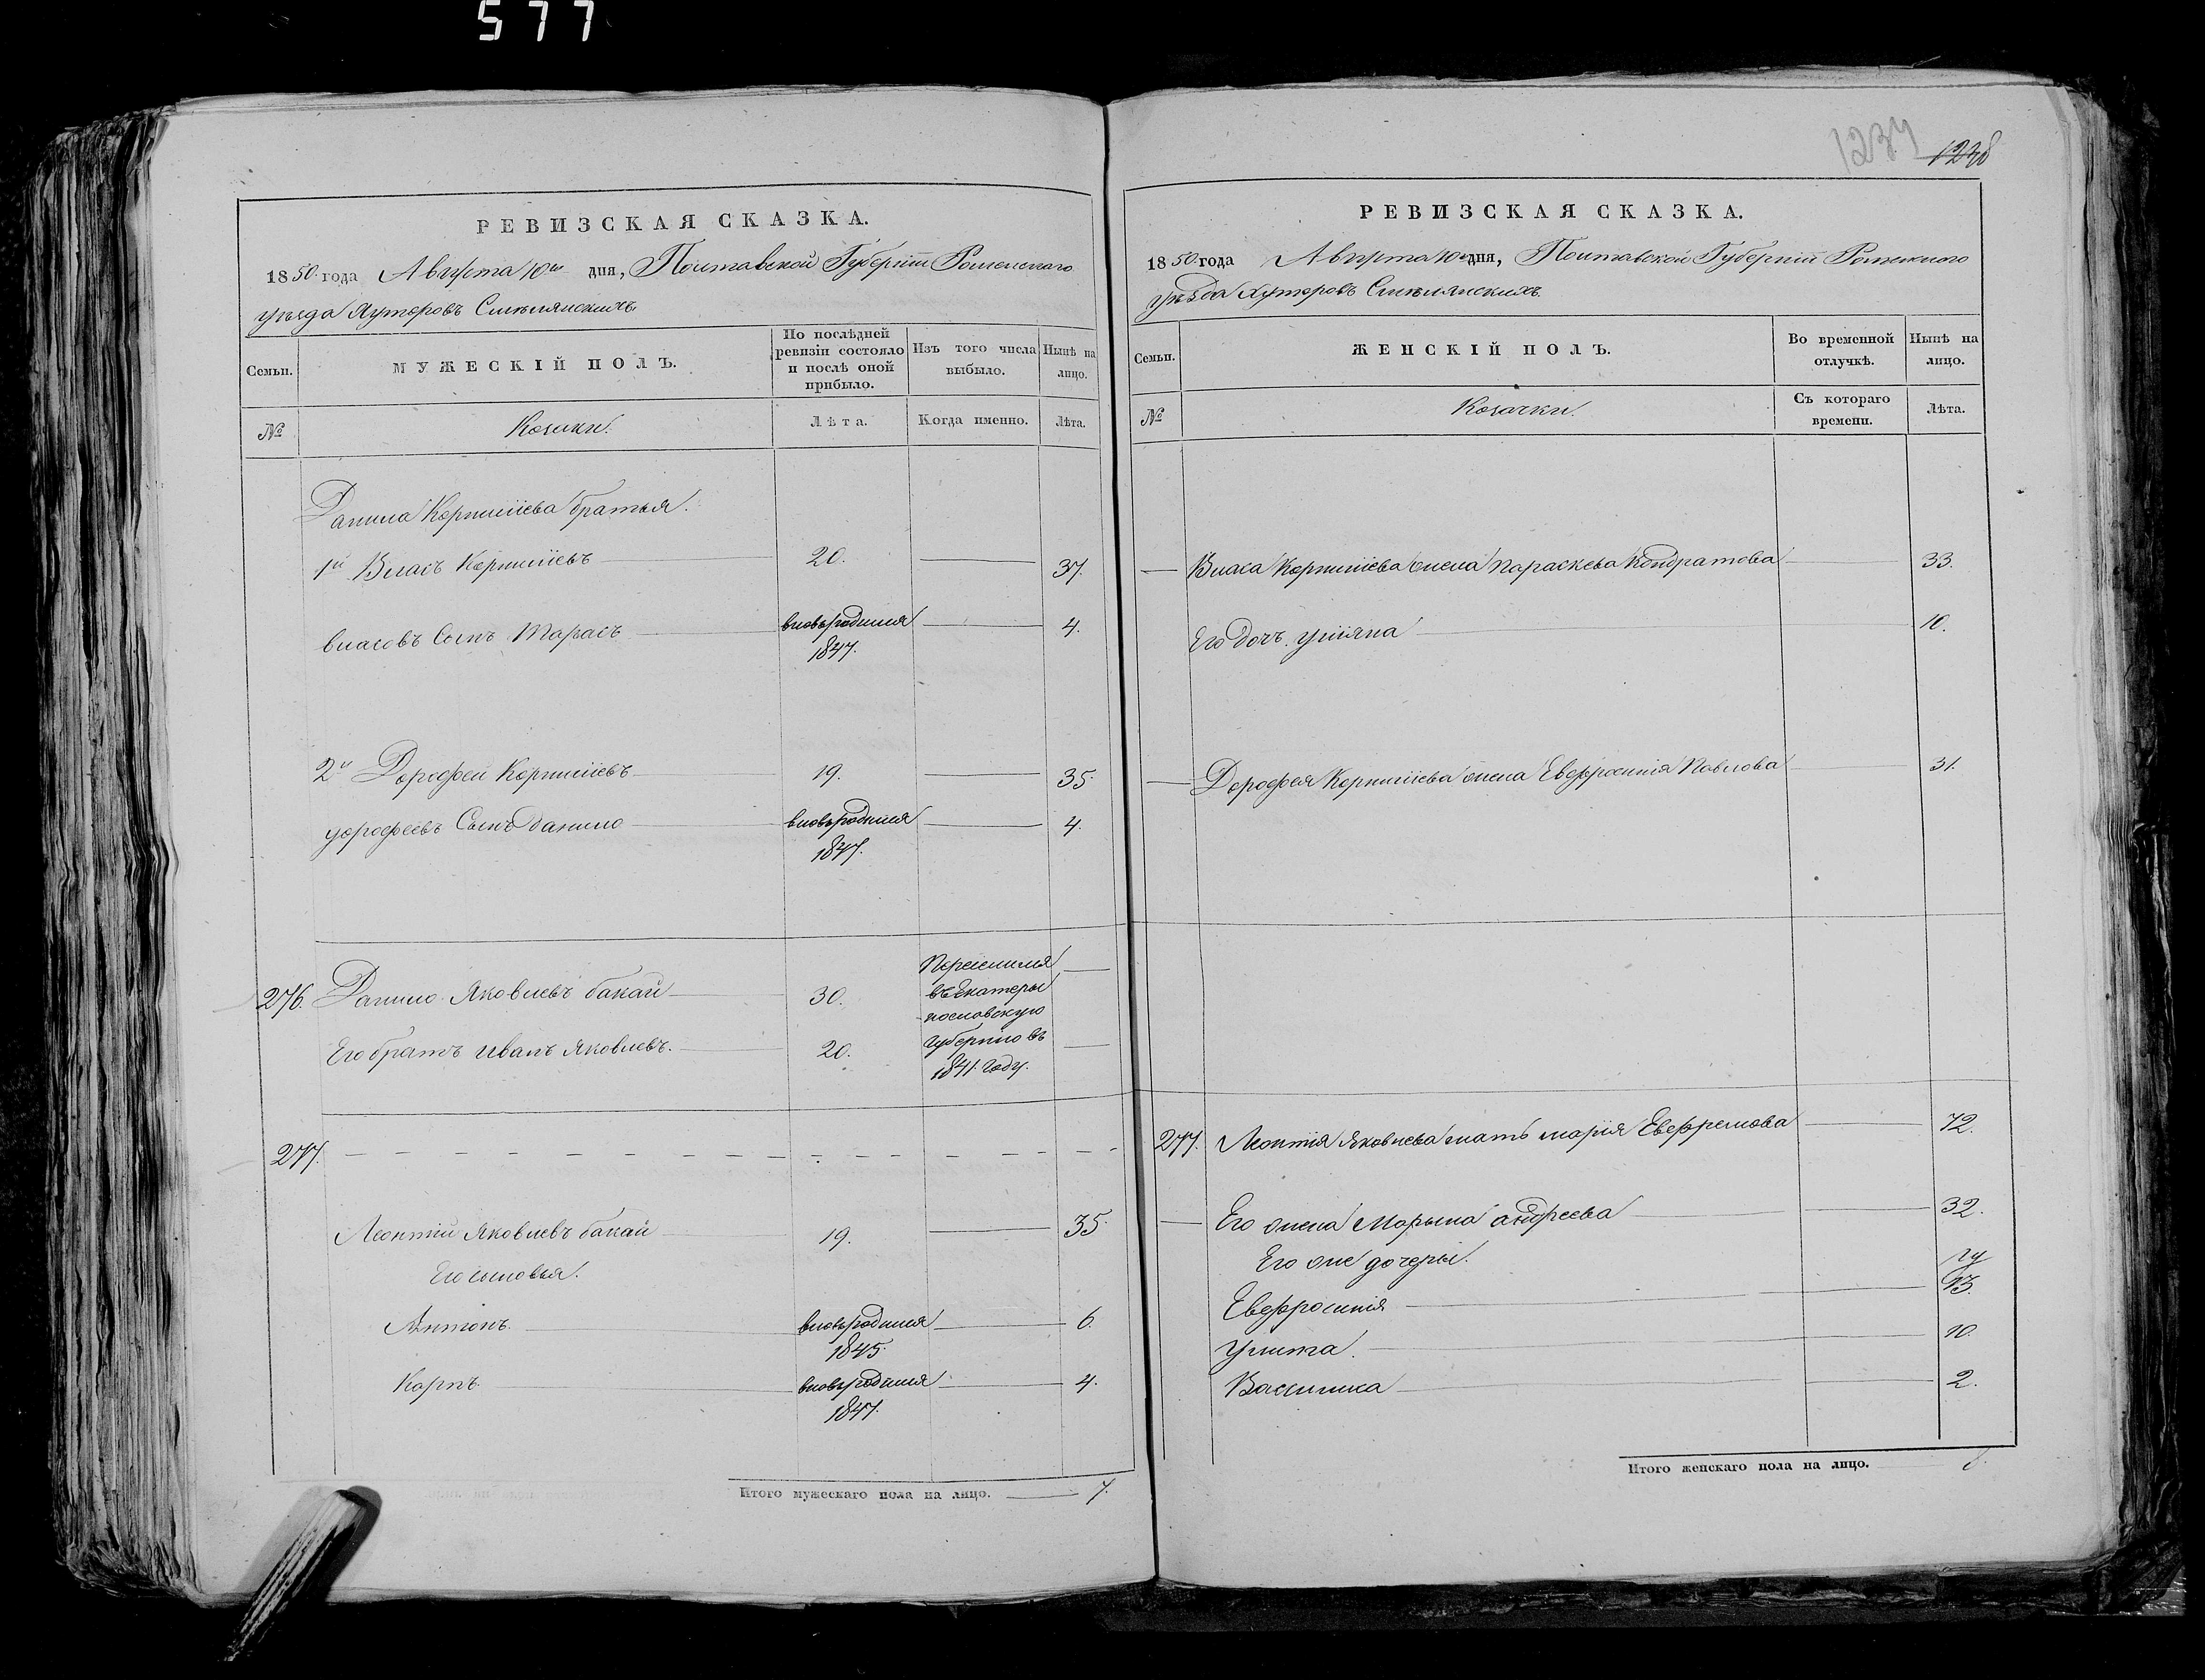 577
1237
1238
РЕВИЗСКАЯ СКАЗКА.
1850 года Августа 10го дня, Полтавской Губерніи Роменскаго
уезда Хуторовъ Смелянскихъ.
Семьи.
МУЖЕСКІЙ ПОЛЪ.
По послѣдней
ревизіи состояло
и послѣ оной
прибыло.
Изъ того числа
выбыло.
Нынѣ на
лицо.
№
Козаки.
Лѣта.
Когда именно.
Лѣта.
Данила Корнилиева братья.
1й Власъ Корнилиевъ 20. 37.
власовъ Сынъ Тарасъ вновьродился 4.
1847.
2й Дорофей Корнилиевъ 19. 35.
дорофеевъ Сынъ Данило вновьродился 4.
1847.
276. Данило Яковлевъ бакай 30.
Его братъ иванъ Яковлевъ. 20.
Переселился
въ Екатеры
нославскую
губернию въ
1841. году.
277.
Леонтий Яковлевъ бакай 19. 35.
Его сыновья.
Антонъ. вновьродился 6.
1845.
Карпъ. вновьродился 4.
1847.
Итого мужескаго пола на лицо. 7.
РЕВИЗСКАЯ СКАЗКА.
1850 года Августа 10го дня, Полтавской Губерніи Роменского
уезда Хуторовъ Смелянскихъ.
Семьи.
ЖЕНСКІЙ ПОЛЪ.
Во временной
отлучкѣ.
Нынѣ на
лицо.
№
Козачки.
Съ котораго
времени.
Лѣта.
Власа Корнилиева жена Параскева Кондратова 33.
Его дочь улияна 10.
Дорофея Корнилиева жена Евфросиния Павлова 31.
277. Леонтия Яковлева мать мария Евфремова 72.
Его жена Марына андреева 32.
Его же дочеры.
Евфросиния 13.
Улита. 10.
Василиса 2.
Итого женскаго пола на лицо. 8.